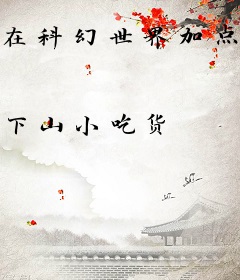 在科幻世界加点
下山小吃货